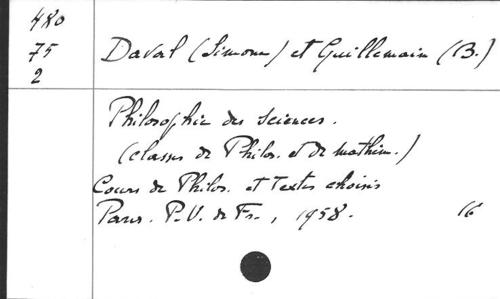 480
75
2
Daval (Simone) et Guillemain (B.)
Philosophie des Sciences.
(classes de Philos. et de mathém.)
Cours de Philos. et Textes choisis
Paris. P.U. de Fr., 1958. 16